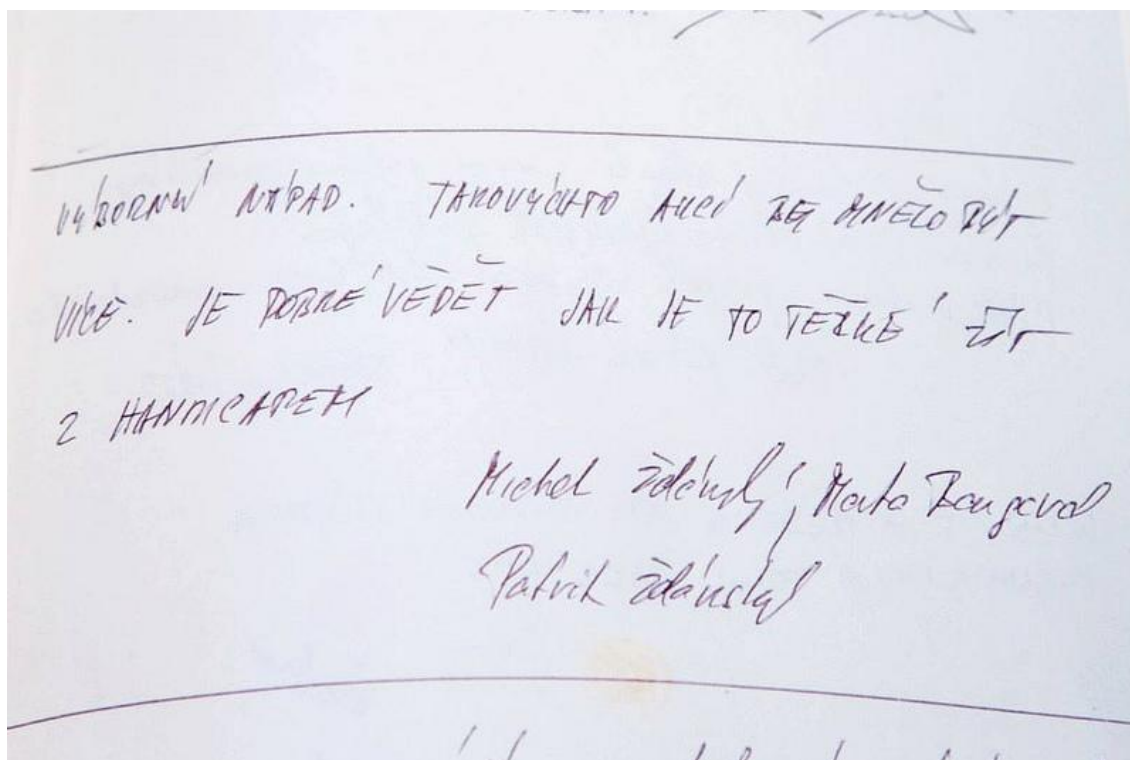 VÝBORNÝ NÁPAD. TAKOVÝCHTO AKCÍ BY MNĚLO BÝT
VÍCE. JE DOBRÉ VĚDĚT JAK JE TO TĚŽKÉ ŽÍT
Z HANDICAPEM
Michal Ždánský, Marta
Patrik Ždánský